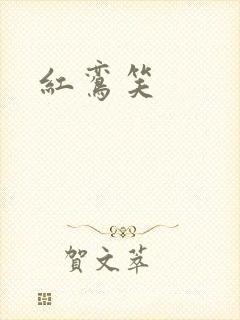 紅鸞笑
賀文萃